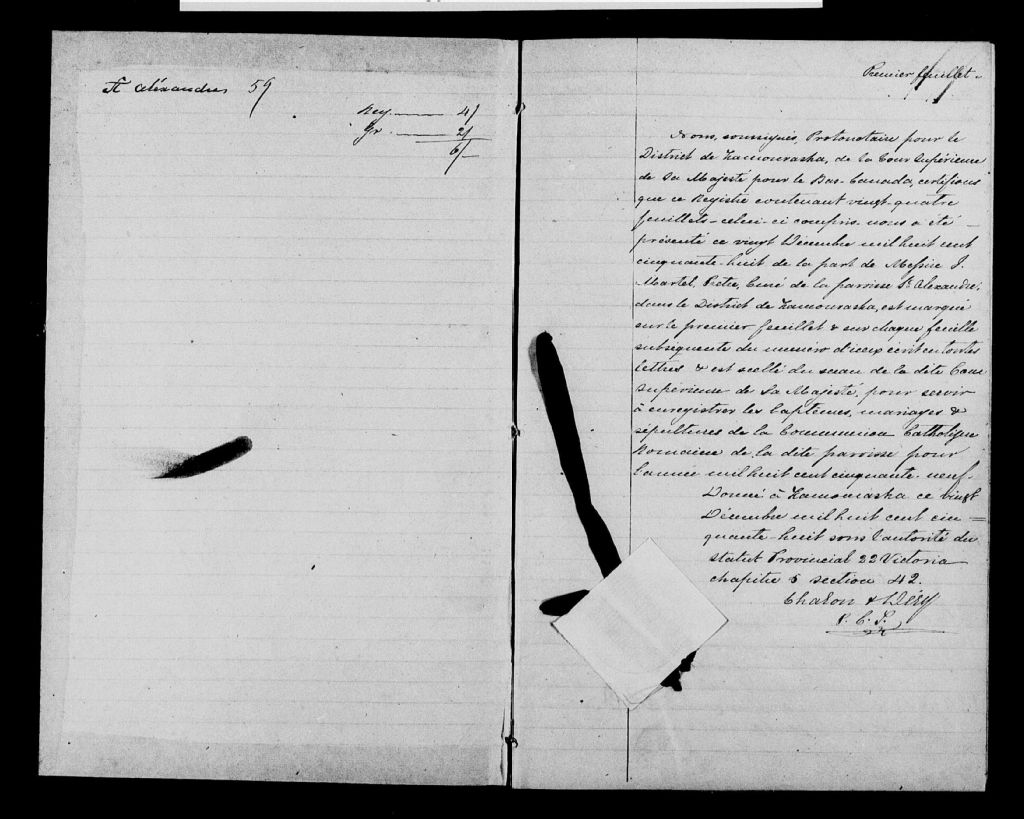 St Aléxandre 59
Reg. 4/
Gr 2/
6/-
Premier feuillet.
Nous, soussignés, Protonotaire pour le
District de Kamouraska, de la Cour Supérieure
de Sa Majesté pour le Bas-Canada, certifions
que ce Registre contenant vingt-quatre
feuillets - celui-ci compris nous a été
présenté ce vingt Décembre mil huit cent
cinquante-huit de la part de Messire J.
Martel, Prêtre, Curé de la paroisse St Alexandre,
dans le District de Kamouraska, est marqué
sur le premier feuillet & sur chaque feuille
subséquente du numéro d'iceux écrit en toutes
lettres & est scellé du sceau de la dite Cour
Supérieure de Sa Majesté, pour servir
à enregistrer les baptêmes, mariages &
sépultures de la Communion Catholique
Romaine de la dite paroisse pour
l'année mil huit cent cinquante-neuf.
Donné à Kamouraska ce vingt
Décembre mil huit cent cin=
quante-huit sous l'autorité du
statut Provincial 22 Victoria
chapitre 5 section 42.
Chalon & Déry
P. C. S.